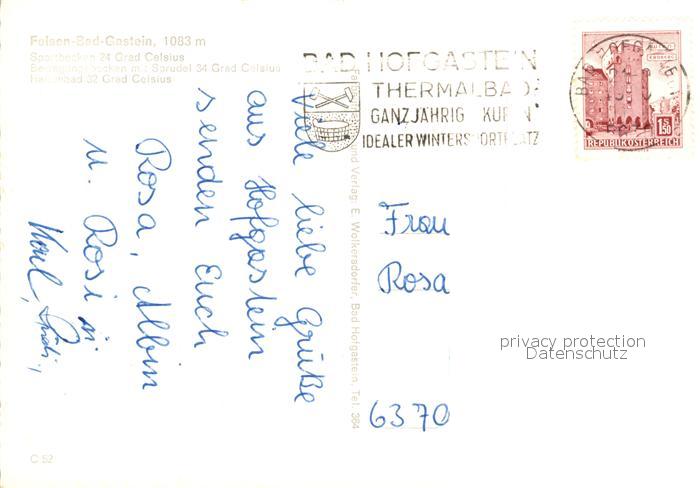 Felsen-Bad-Gastein, 1083 m
Sportbecken 24 Grad Celsius
Bewegungsbecken mit Sprudel 34 Grad Celsius
Hallenbad 32 Grad Celsius
BAD HOFGASTEIN
THERMALBAD
GANZJÄHRIG KUREN
IDEALER WINTERSPORTPLATZ
BAD HOFGASTEIN
1.50
REPUBLIK ÖSTERREICH
Viele liebe Grüße
aus Hofgastein
senden Euch
Rosa, Albin
u. Rosi
Karl,
und Verlag: E. Wolkersdorfer, Bad Hofgastein, Tel. 364
Frau
Rosa
6370
privacy protection
Datenschutz
C 52